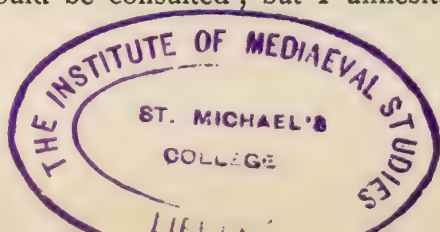 be consulted, but I
THE INSTITUTE OF MEDIAEVAL STUDIES
ST. MICHAEL'S
COLLEGE